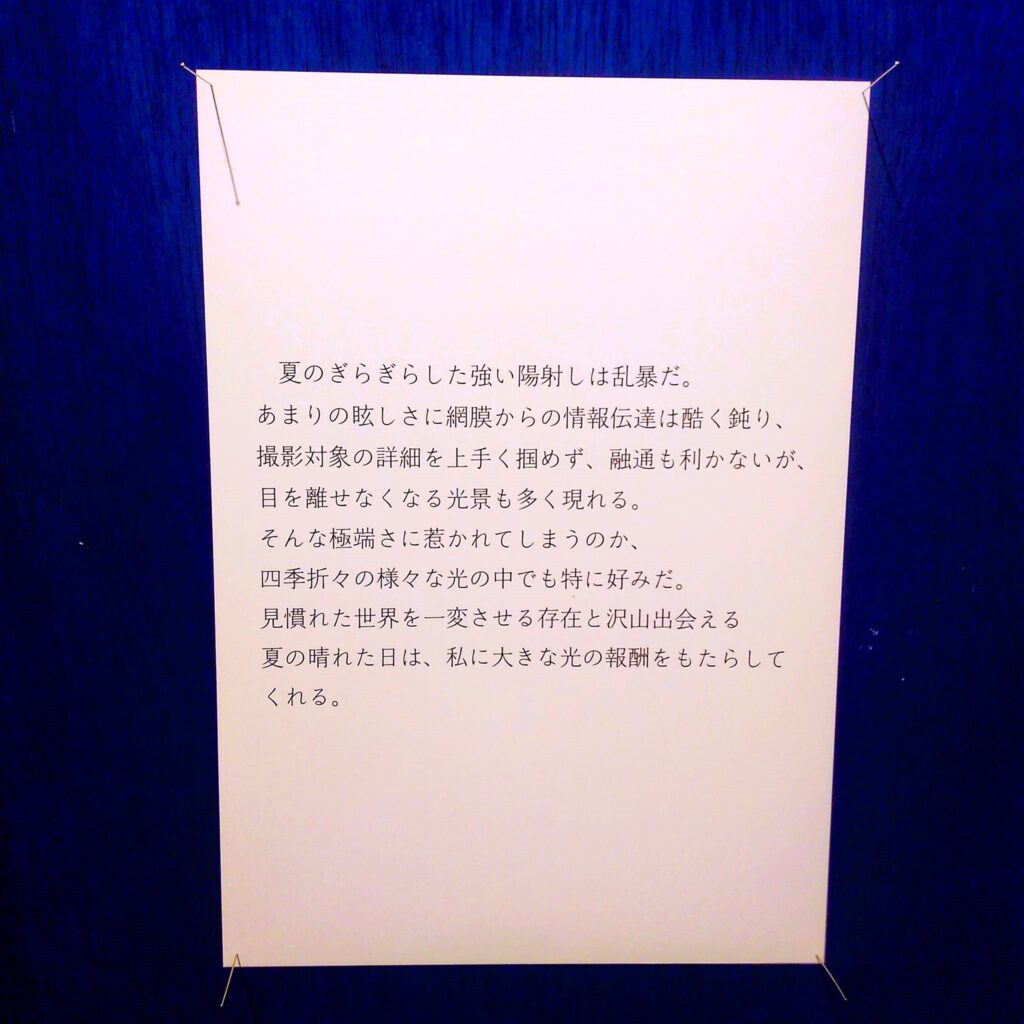 夏のぎらぎらした強い陽射しは乱暴だ。
あまりの眩しさに網膜からの情報伝達は酷く鈍り、
撮影対象の詳細を上手く掴めず、融通も利かないが、
目を離せなくなる光景も多く現れる。
そんな極端さに惹かれてしまうのか、
四季折々の様々な光の中でも特に好みだ。
見慣れた世界を一変させる存在と沢山出会える
夏の晴れた日は、私に大きな光の報酬をもたらして
くれる。